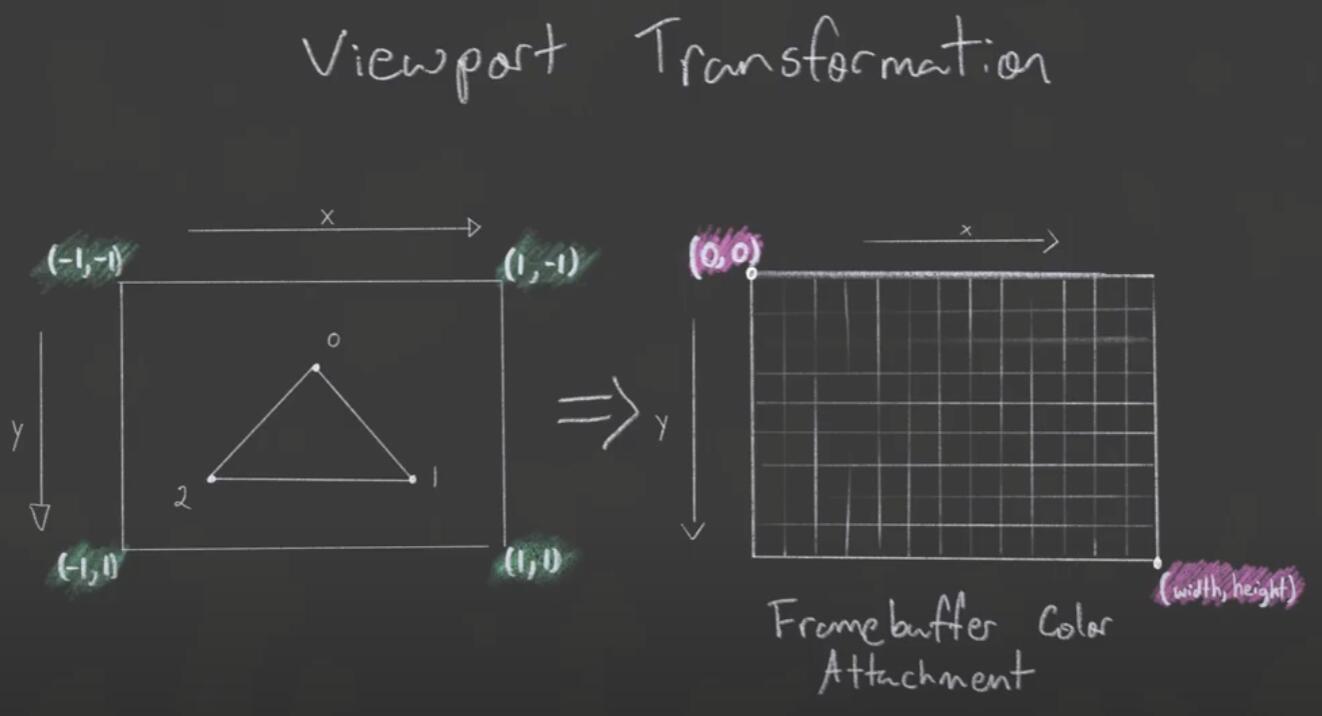 Viewport Transformation
x
(-1,-1)
(1,-1)
y
0
1
2
(-1,1)
(1,1)
x
(0,0)
y
(width, height)
Framebuffer Color
Attachment